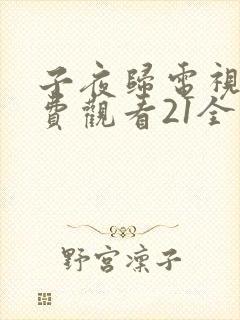 子夜歸電視
費觀看21全
野宮凜子